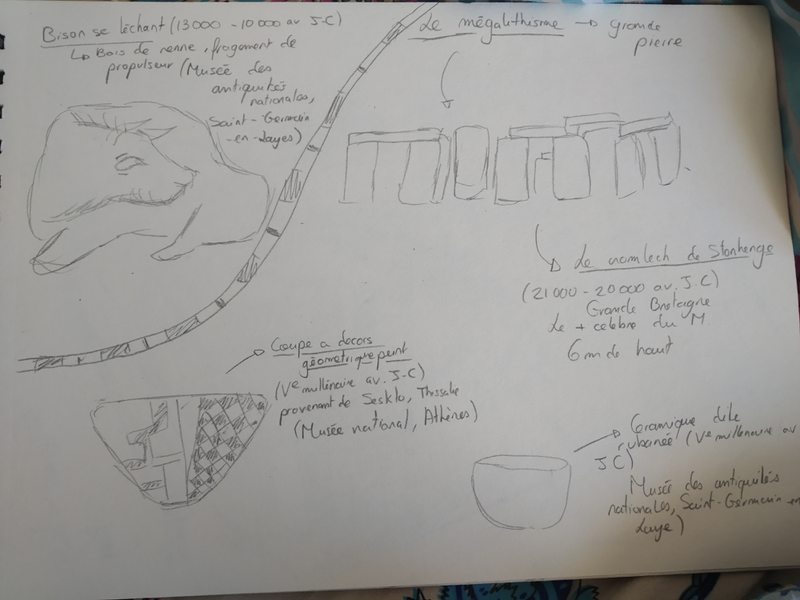 Bison se léchant (13000 - 10 000 av J-C)
↳ Bois de renne, fragement de
propulseur (Musée des
antiquités
nationales,
Saint-Germain
-en-Layes)
Le mégalithisme → grande
pierre
Le cromlech de Stonhenge
(21 000 - 20 000 av. J.C)
Grande Bretagne
Le + célèbre du M.
6 m de haut
Coupe a decors
géometrique peint
(Ve millénaire av. J-C)
provenant de Sesklo, Thissalie
(Musée national, Athènes)
Ceramique dite
rubanée (Ve millénaire av
J C)
Musée des antiquités
nationales, Saint-Germain en
Laye)